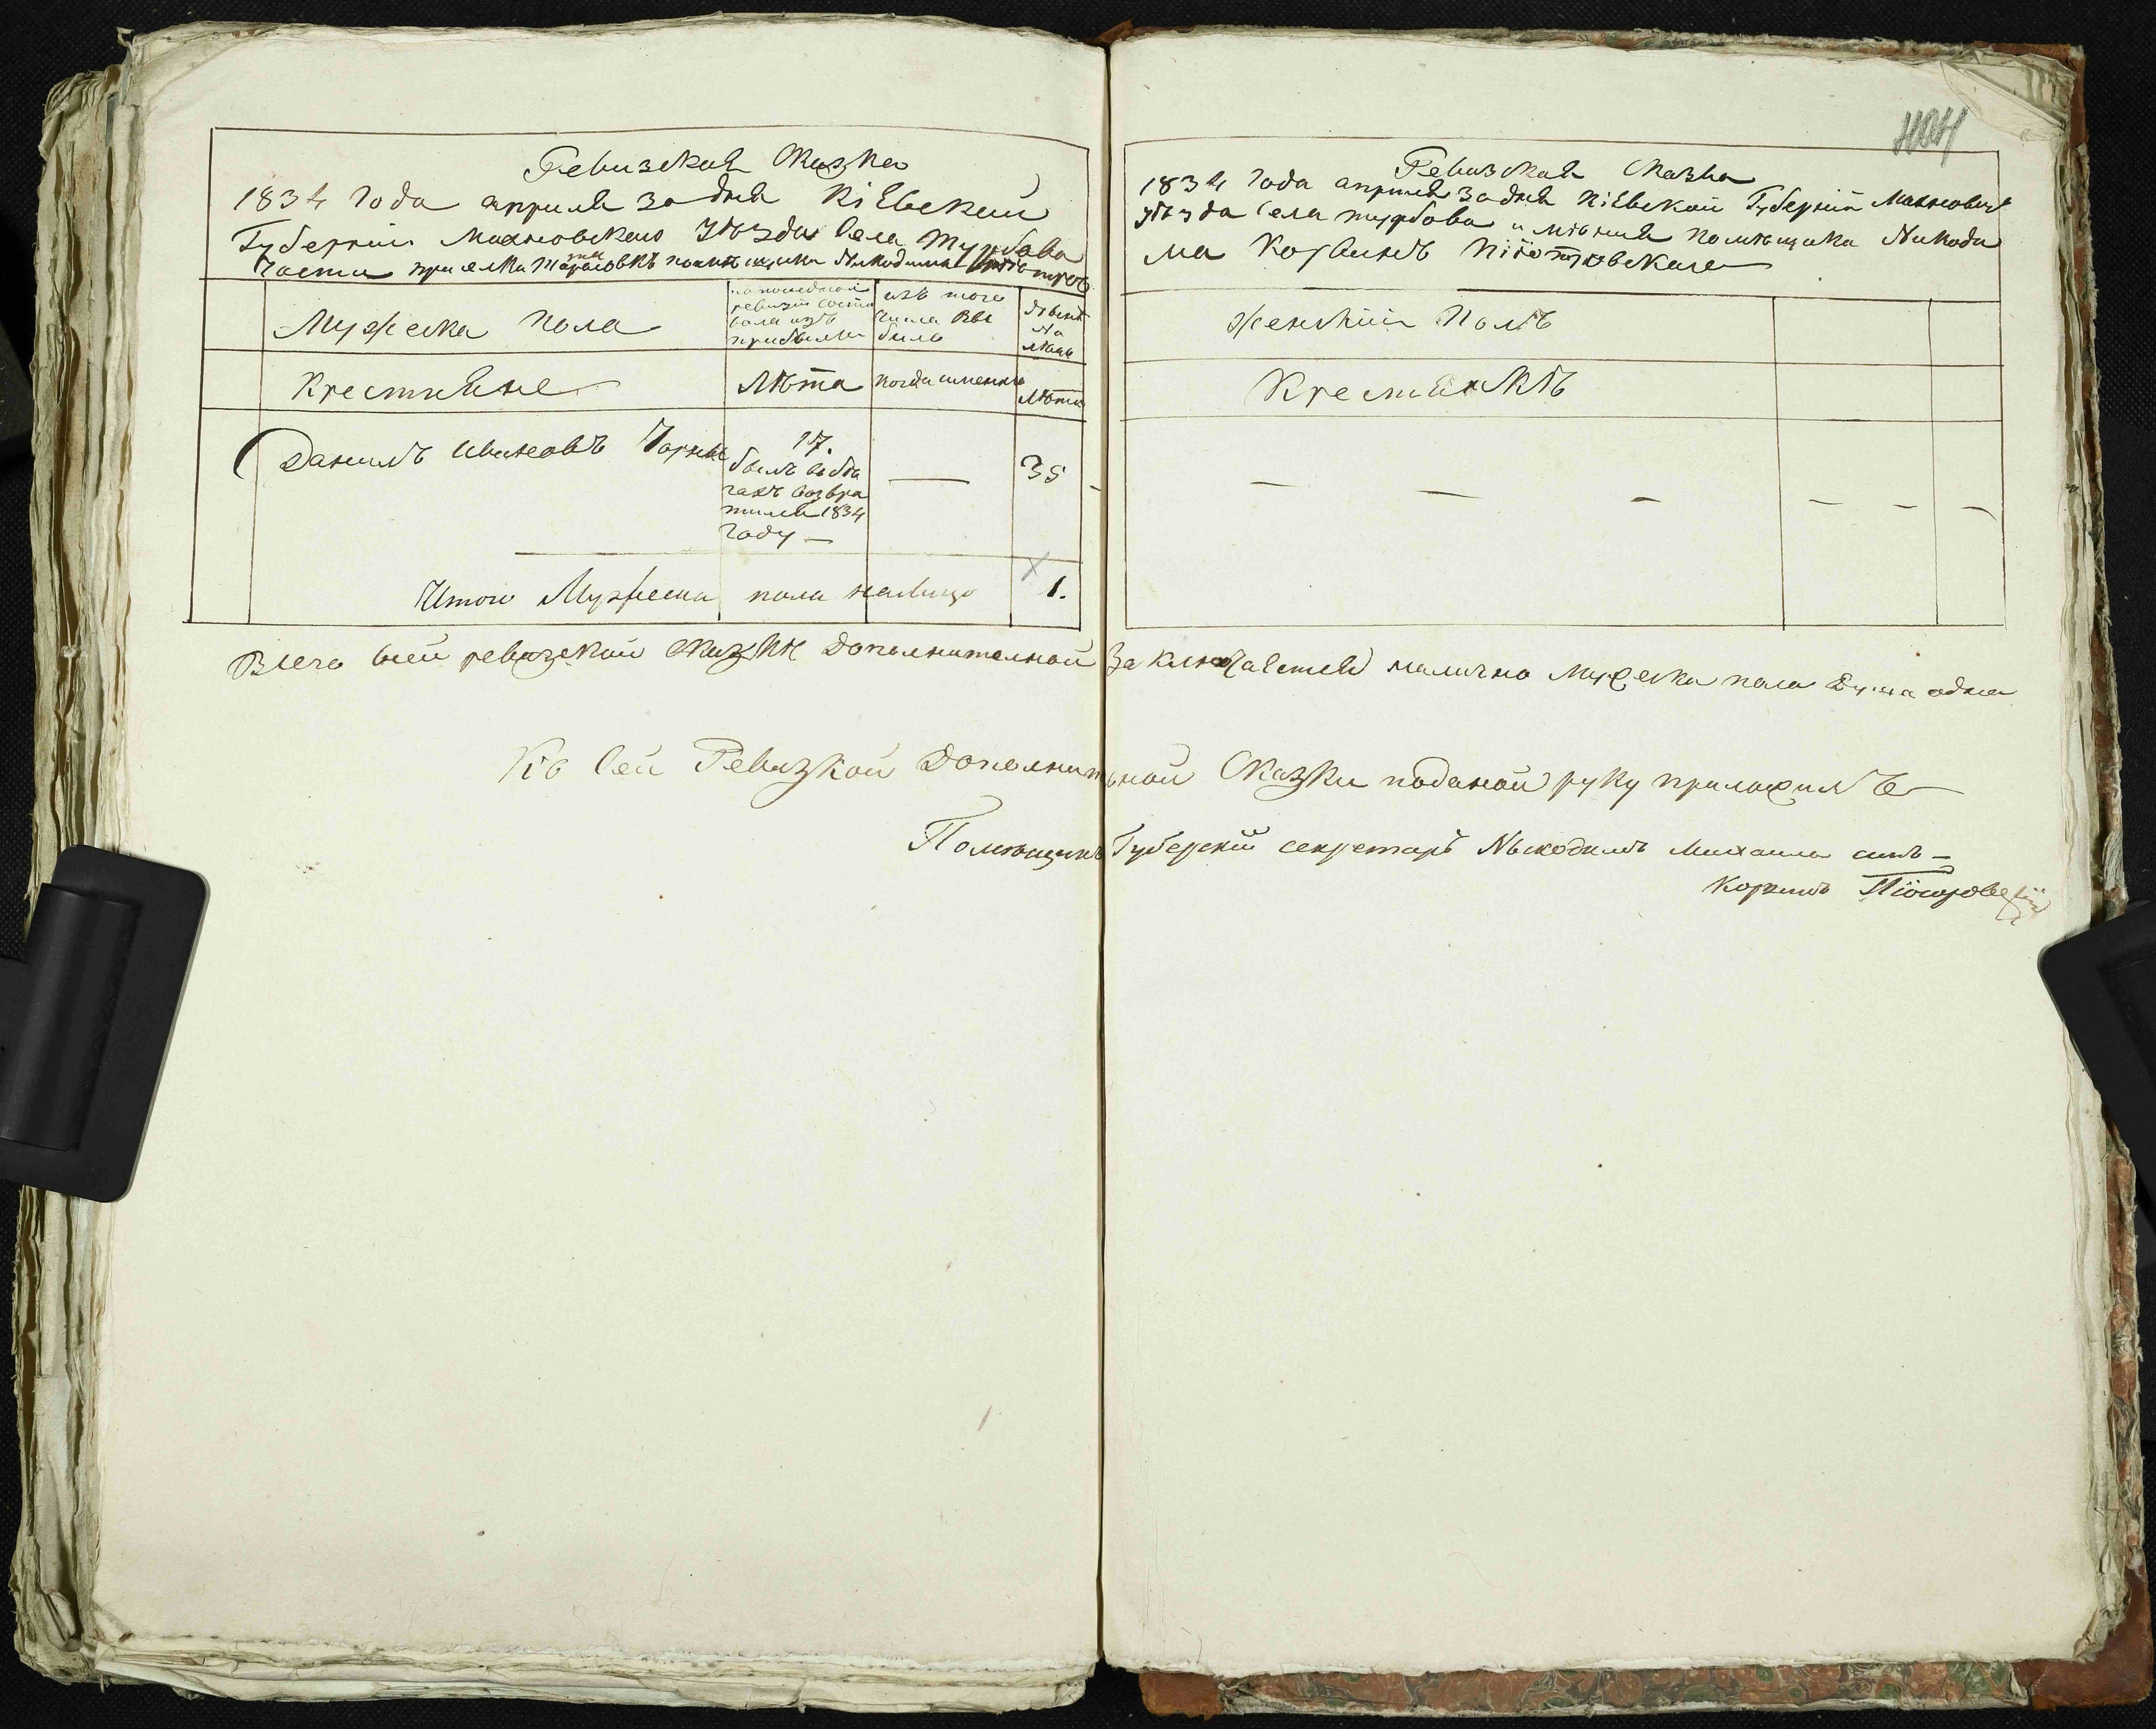 Ревизская Сказка
1834 года апреля 30 дня Кіевской
Губерніи Махновскаго уѣзда села Турбова
Части приселка помѣщика Никодима
Мужеска пола
по последней
ревизіи состо
яло изъ
прибыли
изъ того
числа вы
было
нынѣ
на
лицо
Крестьяне
Лѣта
когда именно
Лѣта
Данилъ Ивановъ Чорны
17.
былъ въ бѣ
гахъ возвра
тился 1834
году —
—
35
Итого Мужеска пола налицо
1.
404
Ревизская Сказка
1834 года апреля 30 дня Кіевской Губерніи Махновск
уѣзда села турбова имѣнія помѣщика Никоди
ма Корвинъ Піотровскаго
Женскій Полъ
Крестьянкѣ
— — — — — —
Всего въ сей ревизской сказкѣ дополнителной заключается налично мужеска пола душа одна
Къ сей Ревизкой Дополнитьной Сказки поданой руку приложилъ
Помѣщикъ Губерскій секретарь Никодимъ Михаила сынъ —
Корвинъ Піотровскій